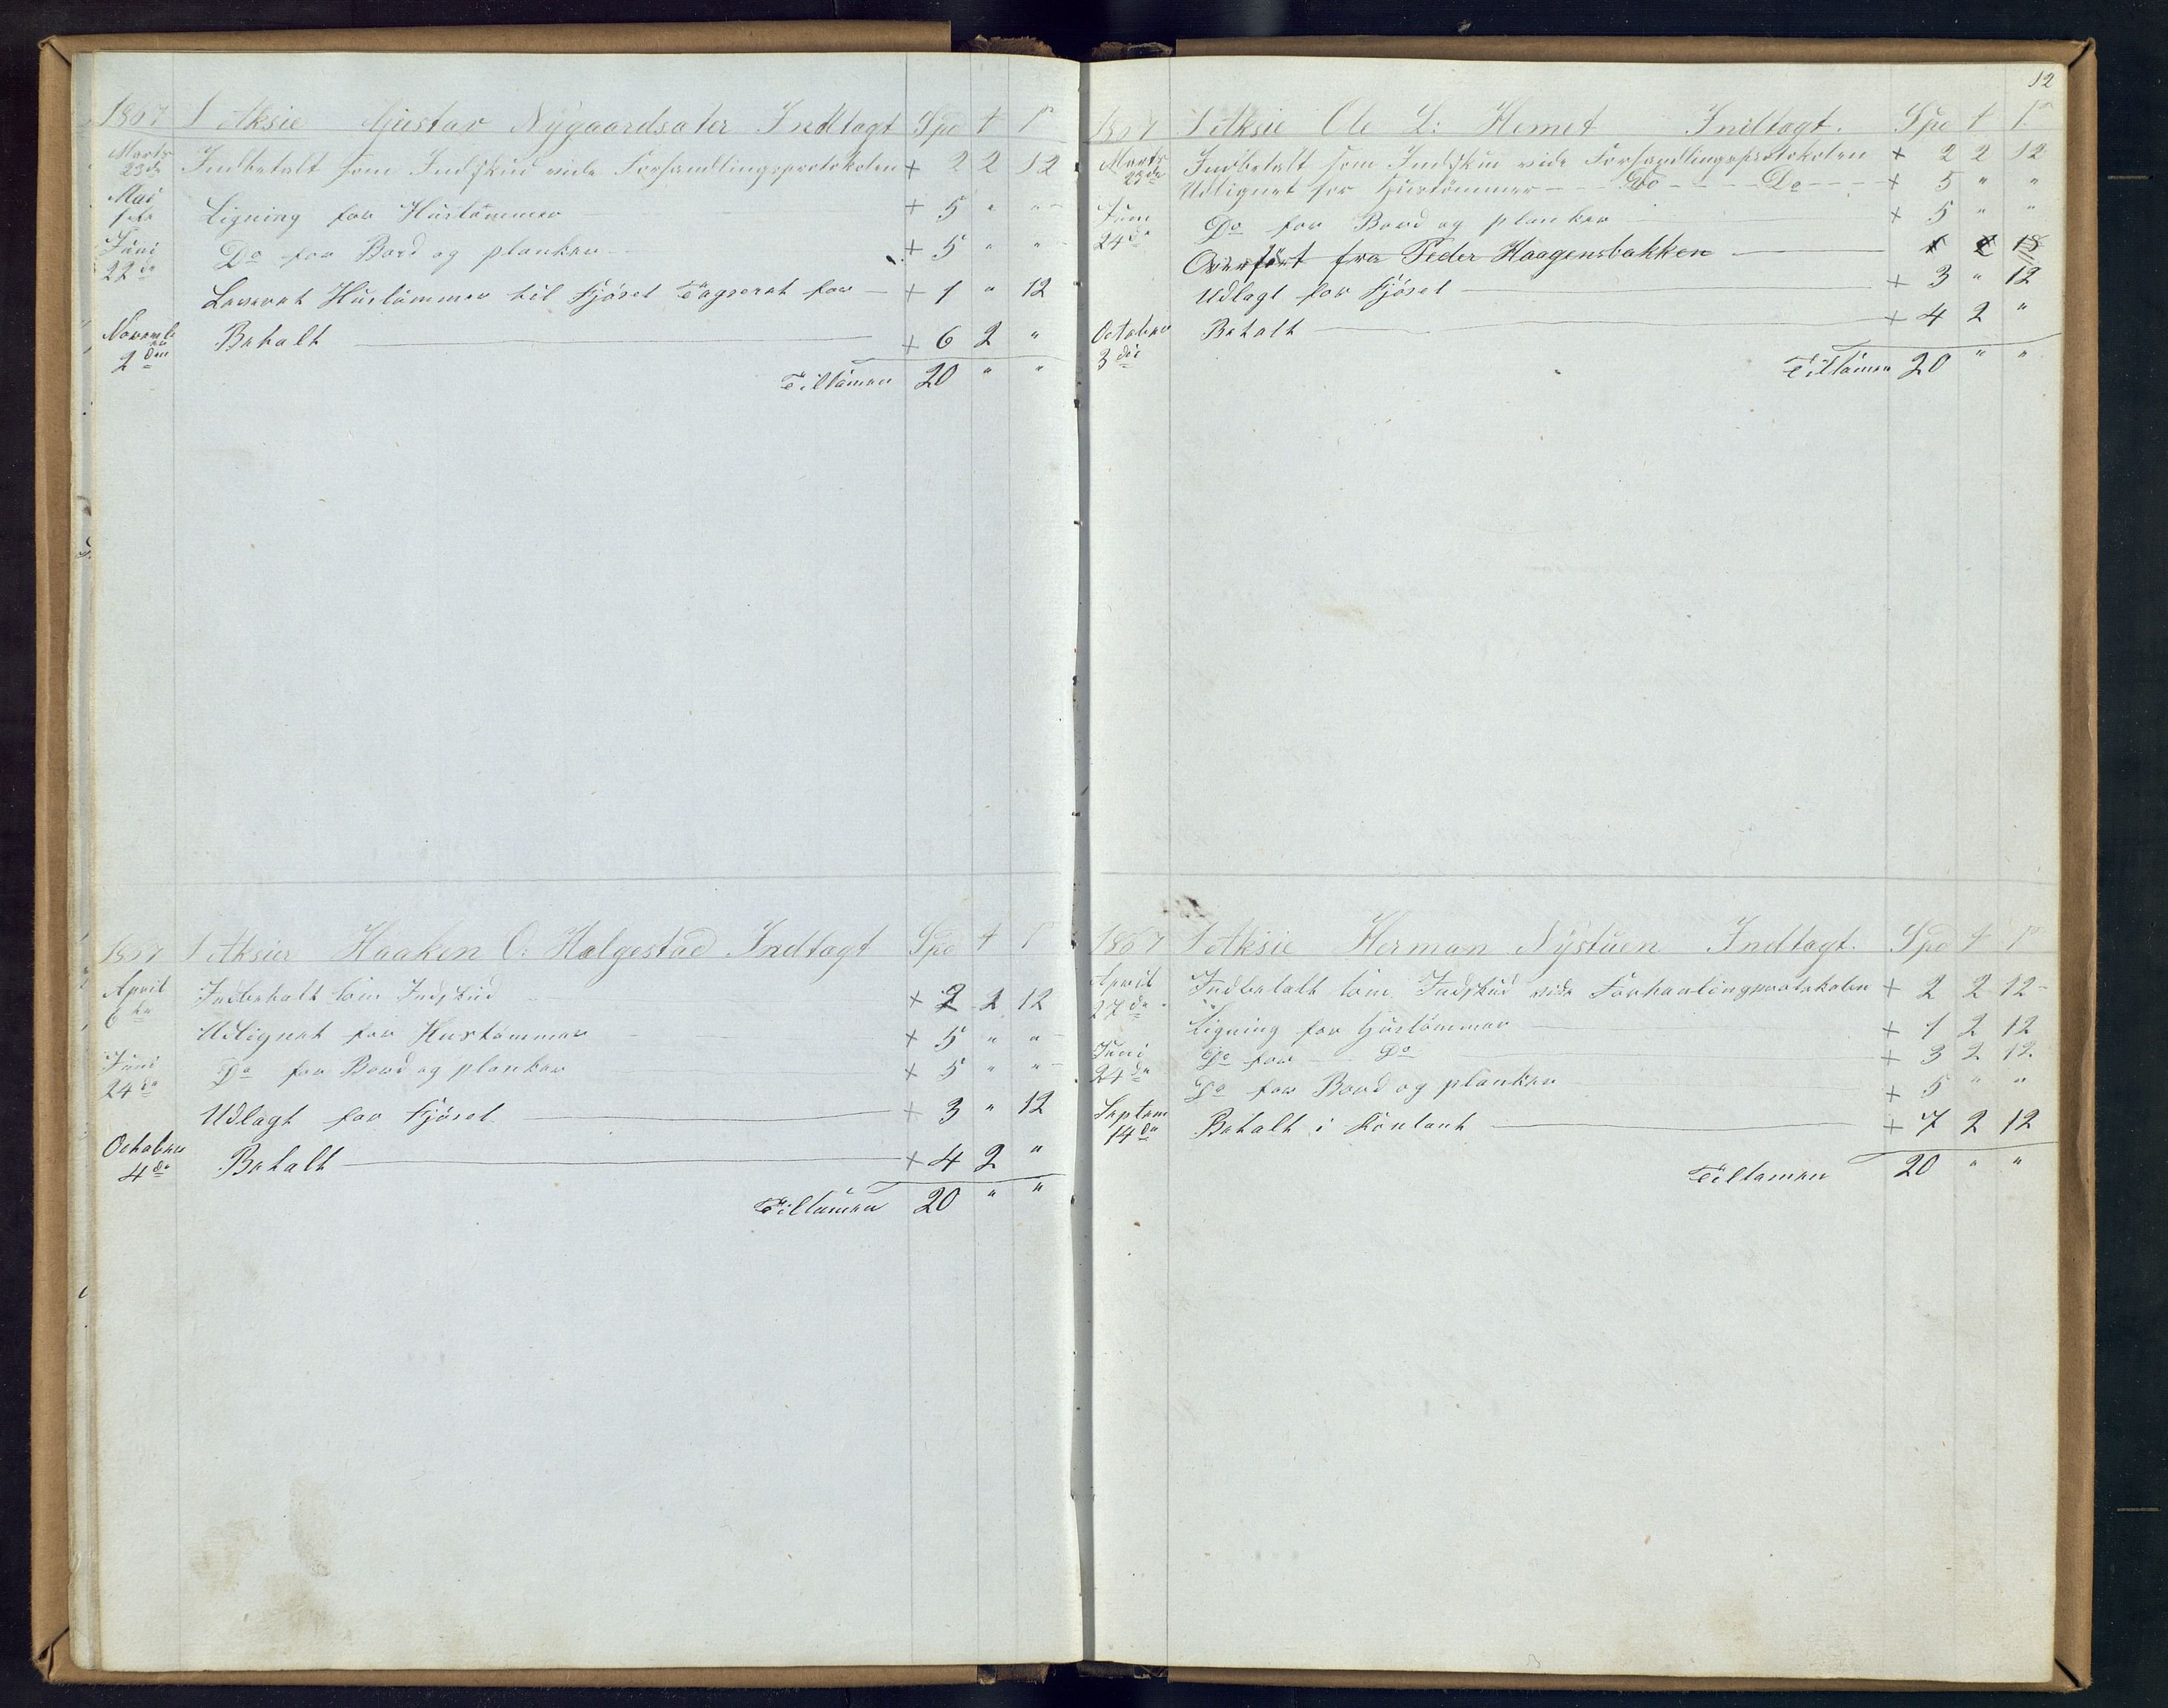 1867 1 Aksie Gustav Nygaardsæter Indtagt Spd ₰ β
Marts 23de Indbetalt som Indskud vide Forhandlingsprotokolen + 2 2 12
Mai 1ste Ligning for Hustømmer + 5 " "
Juni 22de Do for Bord og planker + 5 " "
Leveret Hustømmer til Fjøset Tagseret for + 1 " 12
Novembr 2den Betalt + 6 2 "
Tilsamen 20 " "
1867 1 Aksier Haaken O: Halgestad Indtagt Spd ₰ β
April 6te Indbetalt som Indskud + 2 2 12
Udlignet for Hustømmer + 5 " "
Juni 24de Do for Bord og planker + 5 " "
Udlagt for Fjøset + 3 " 12
October 4de Betalt + 4 2 "
Tilsamen 20 " "
12
1867 1 Aksie Ole L: Hemet Indtagt. Spd ₰ β
Marts 23de Indbetalt som Indskud vide Forhandlingsprotokolen + 2 2 12
Udlignet for Hustømmer Do Do + 5 " "
Juni 24de Do for Bord og planker + 5 " "
Overført fra Peder Haagensbakken
Udlagt for Fjøset + 3 " 12
October 3die Betalt + 4 2 "
Tilsamen 20 " "
1867 1 Aksie Herman Nystuen Indtagt. Spd ₰ β
April 27de Indbetalt som Indskud vide Forhanlingprotokolen + 2 2 12
Ligning for Hustømmer + 1 2 12
Juni 24de Do for Do + 3 2 12
Do for Bord og planker + 5 " "
Septem 14de Betalt i Kontant + 7 2 12
Tilsamen 20 " "